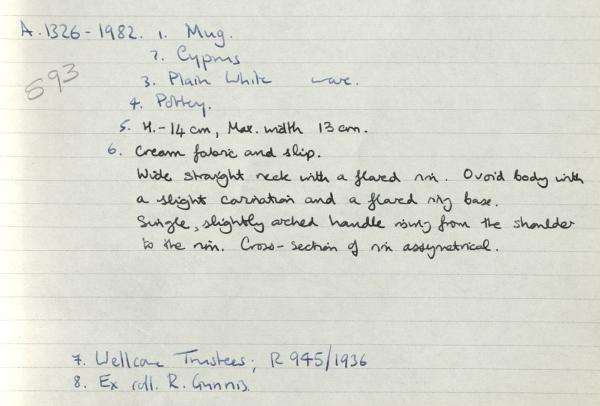 A.1326-1982. 1. Mug.
2. Cyprus
593
3. Plain White ware.
4. Pottery.
5. H.-14cm, Max. width 13cm.
6. Cream fabric and slip.
Wide straight neck with a flared rim. Ovoid body with
a slight carination and a flared ring base.
Single, slightly arched handle rising from the shoulder
to the rim. Cross-section of rim assymetrical.
7. Wellcome Trustees; R 945/1936
8. Ex coll. R. Gunnis.